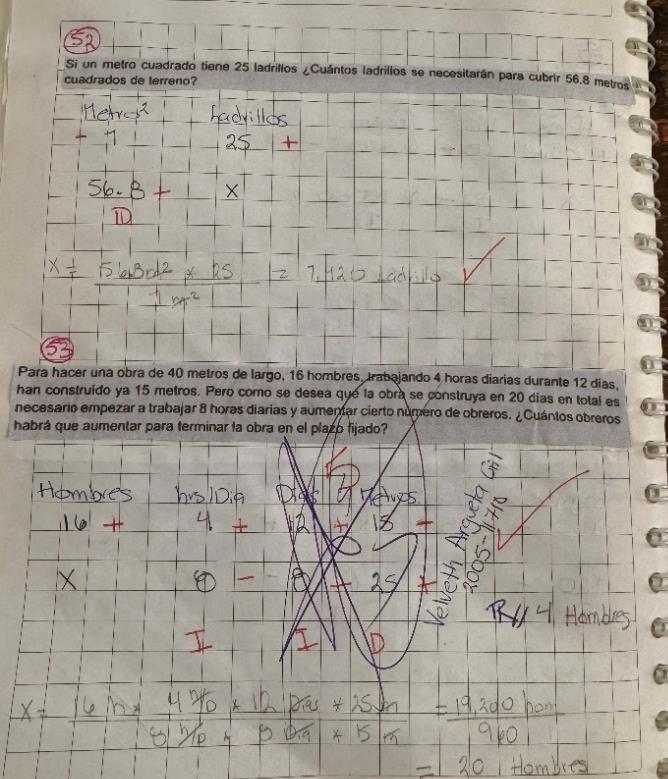 52
Si un metro cuadrado tiene 25 ladrillos ¿Cuántos ladrillos se necesitarán para cubrir 56.8 metros
cuadrados de terreno?
Metros² Ladrillos
+ 1 25 +
56.8 + X
D
X = 56.8 m² * 25 = 1,420 Ladrillo
1 m²
53
Para hacer una obra de 40 metros de largo, 16 hombres, trabajando 4 horas diarias durante 12 días,
han construido ya 15 metros. Pero como se desea que la obra se construya en 20 días en total es
necesario empezar a trabajar 8 horas diarias y aumentar cierto número de obreros. ¿Cuántos obreros
habrá que aumentar para terminar la obra en el plazo fijado?
Hombres hrs/Dia Dias Metros
16 + 4 + 12 + 15 -
X 8 - 8 - 25 +
I I D
Velveth Argueta Gil
R// 4 Hombres
X = 16 h * 4 h/D * 12 Dias * 25 m = 19,200 hom
8 h/D * 8 Dia * 15 m 960
= 20 Hombres